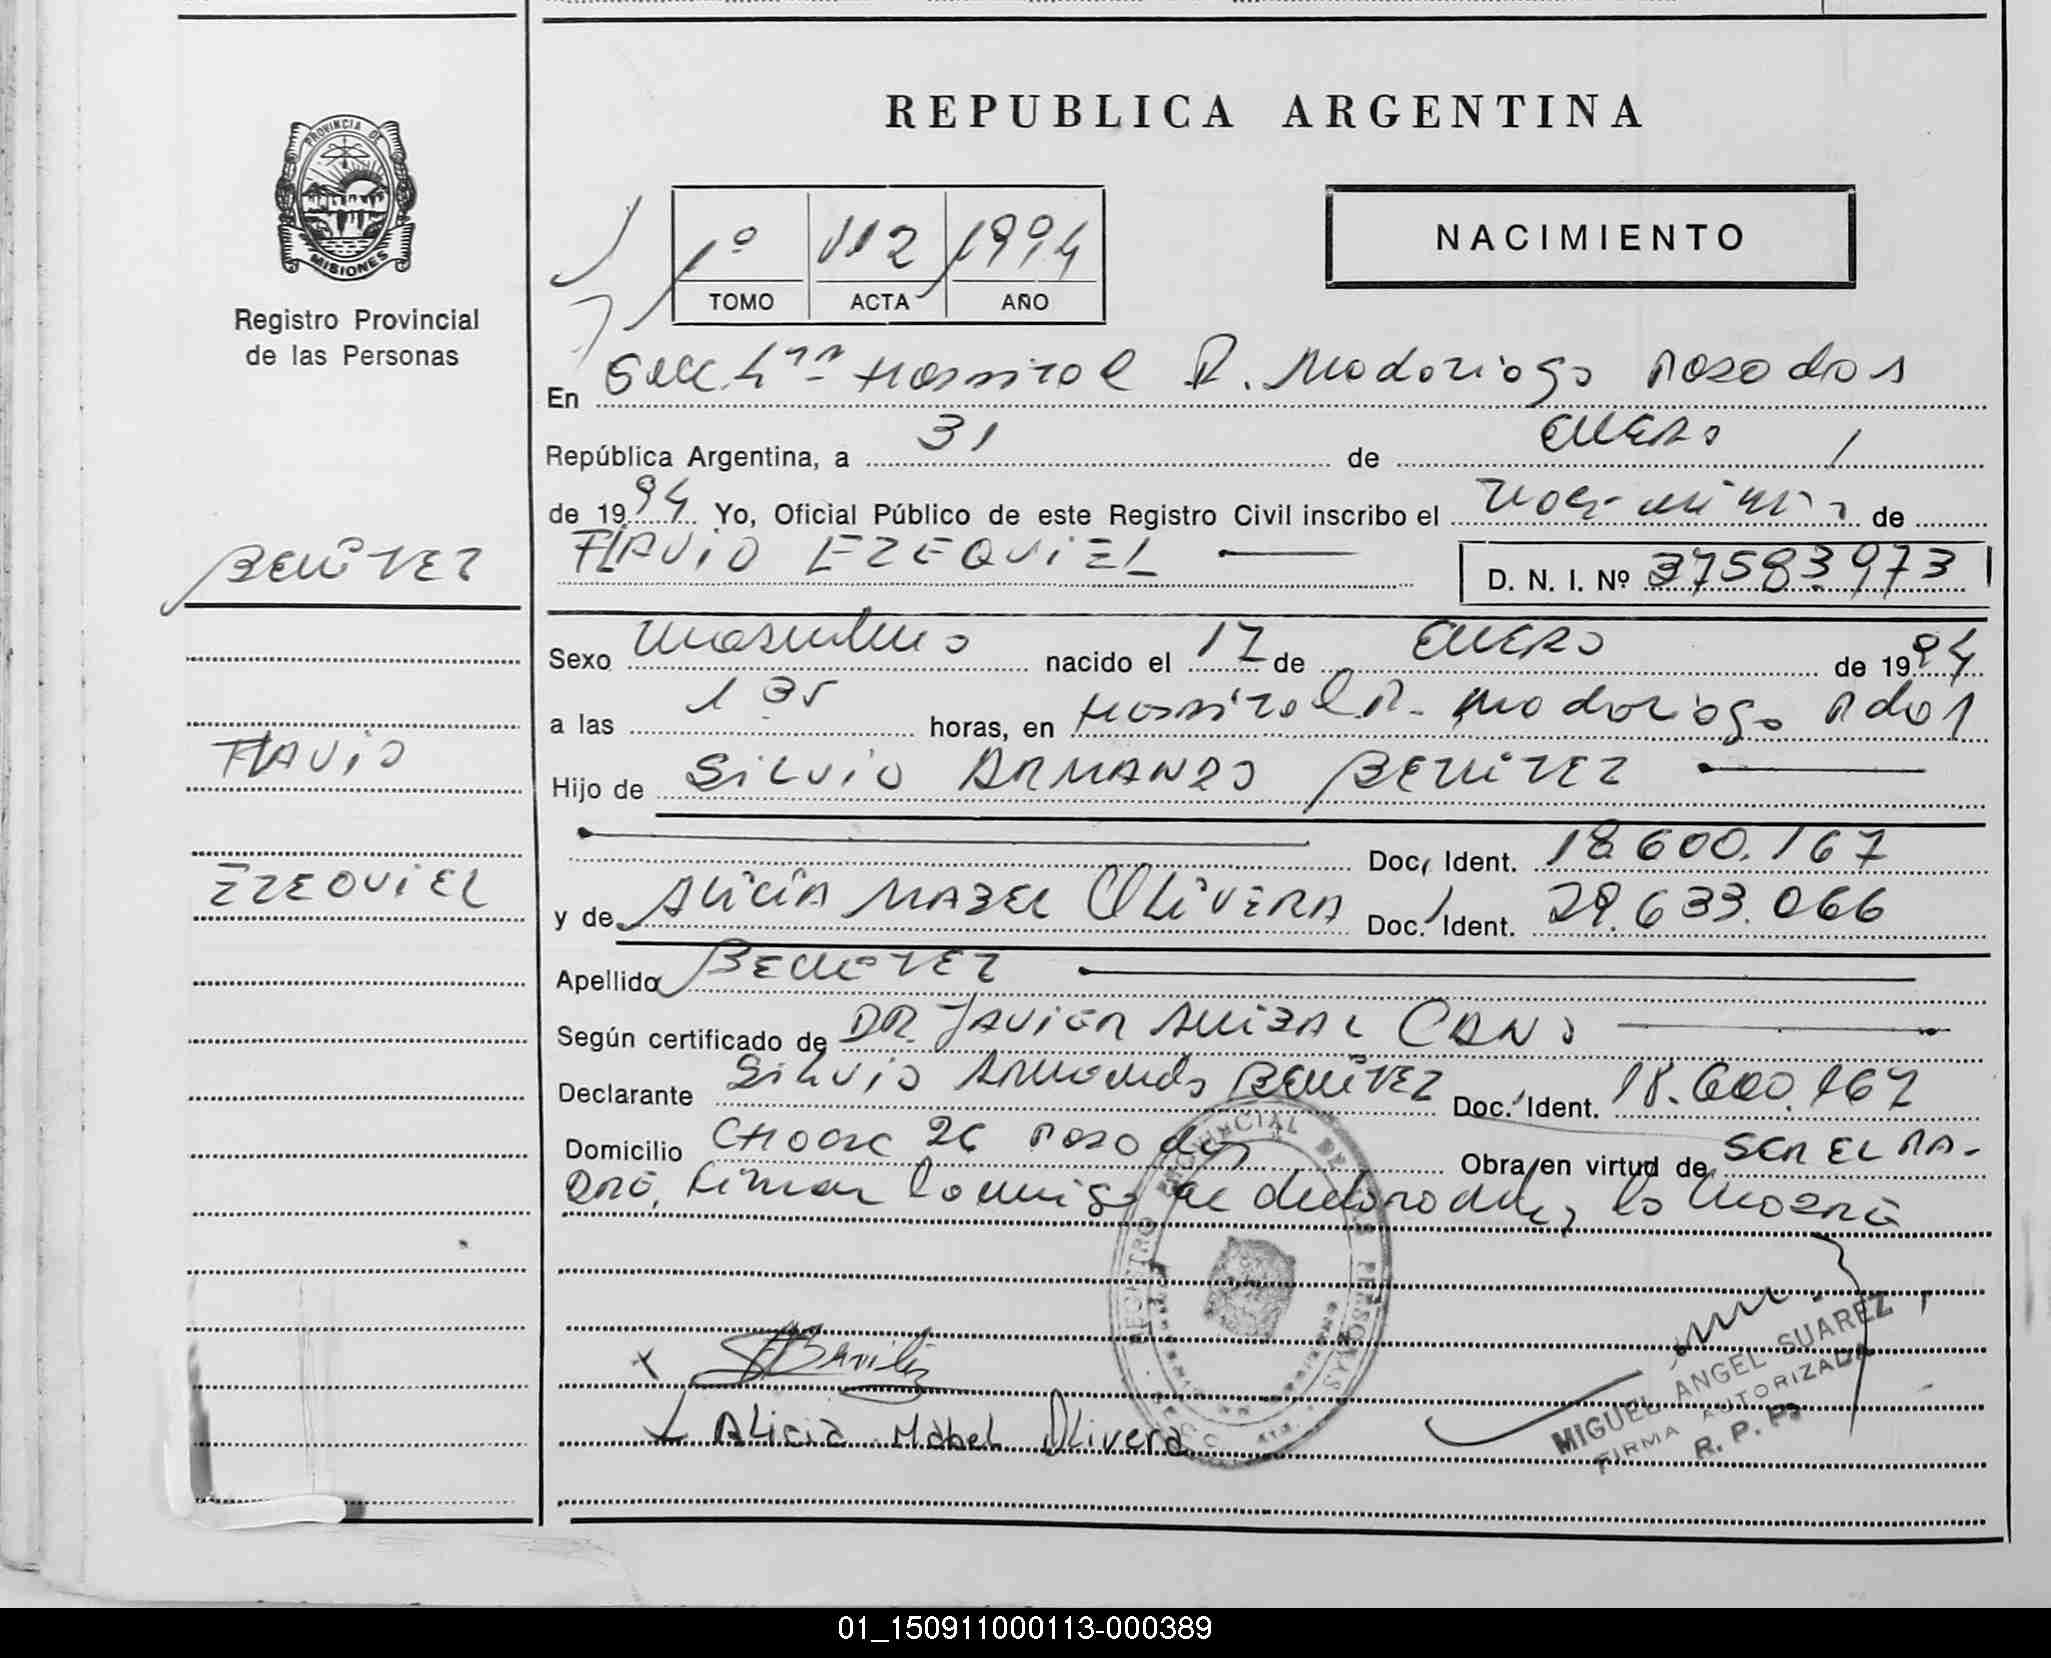 REPUBLICA ARGENTINA
PROVINCIA DE
MISIONES
Registro Provincial
de las Personas
1º 112 1994
TOMO ACTA AÑO
NACIMIENTO
En Secc. Hospital R. Madariaga Posadas
República Argentina, a 31 de ENERO
de 1994 Yo, Oficial Público de este Registro Civil inscribo el de
BENÍTEZ
FLAVIO EZEQUIEL
D. N. I. Nº 37583973
Sexo Masculino nacido el 17 de ENERO de 1994
a las 1 35 horas, en Hospital R. Madariaga Pdas
FLAVIO
Hijo de SILVIO ARMANDO BENITEZ
Doc. Ident. 18.600.167
EZEQUIEL
y de ALICIA MABEL OLIVERA Doc. Ident. 29.633.066
Apellido BENÍTEZ
Según certificado de DR. JAVIER ANIBAL CANO
Declarante SILVIO Armando BENÍTEZ Doc. Ident. 18.600.167
Domicilio 26 Posadas Obra en virtud de SER EL PA-
DRE, Firman conmigo el declarante y la MADRE
REGISTRO PROVINCIAL DE LAS PERSONAS
Alicia Mabel Olivera
MIGUEL ANGEL SUAREZ
FIRMA AUTORIZADA
R. P. P.
01_150911000113-000389